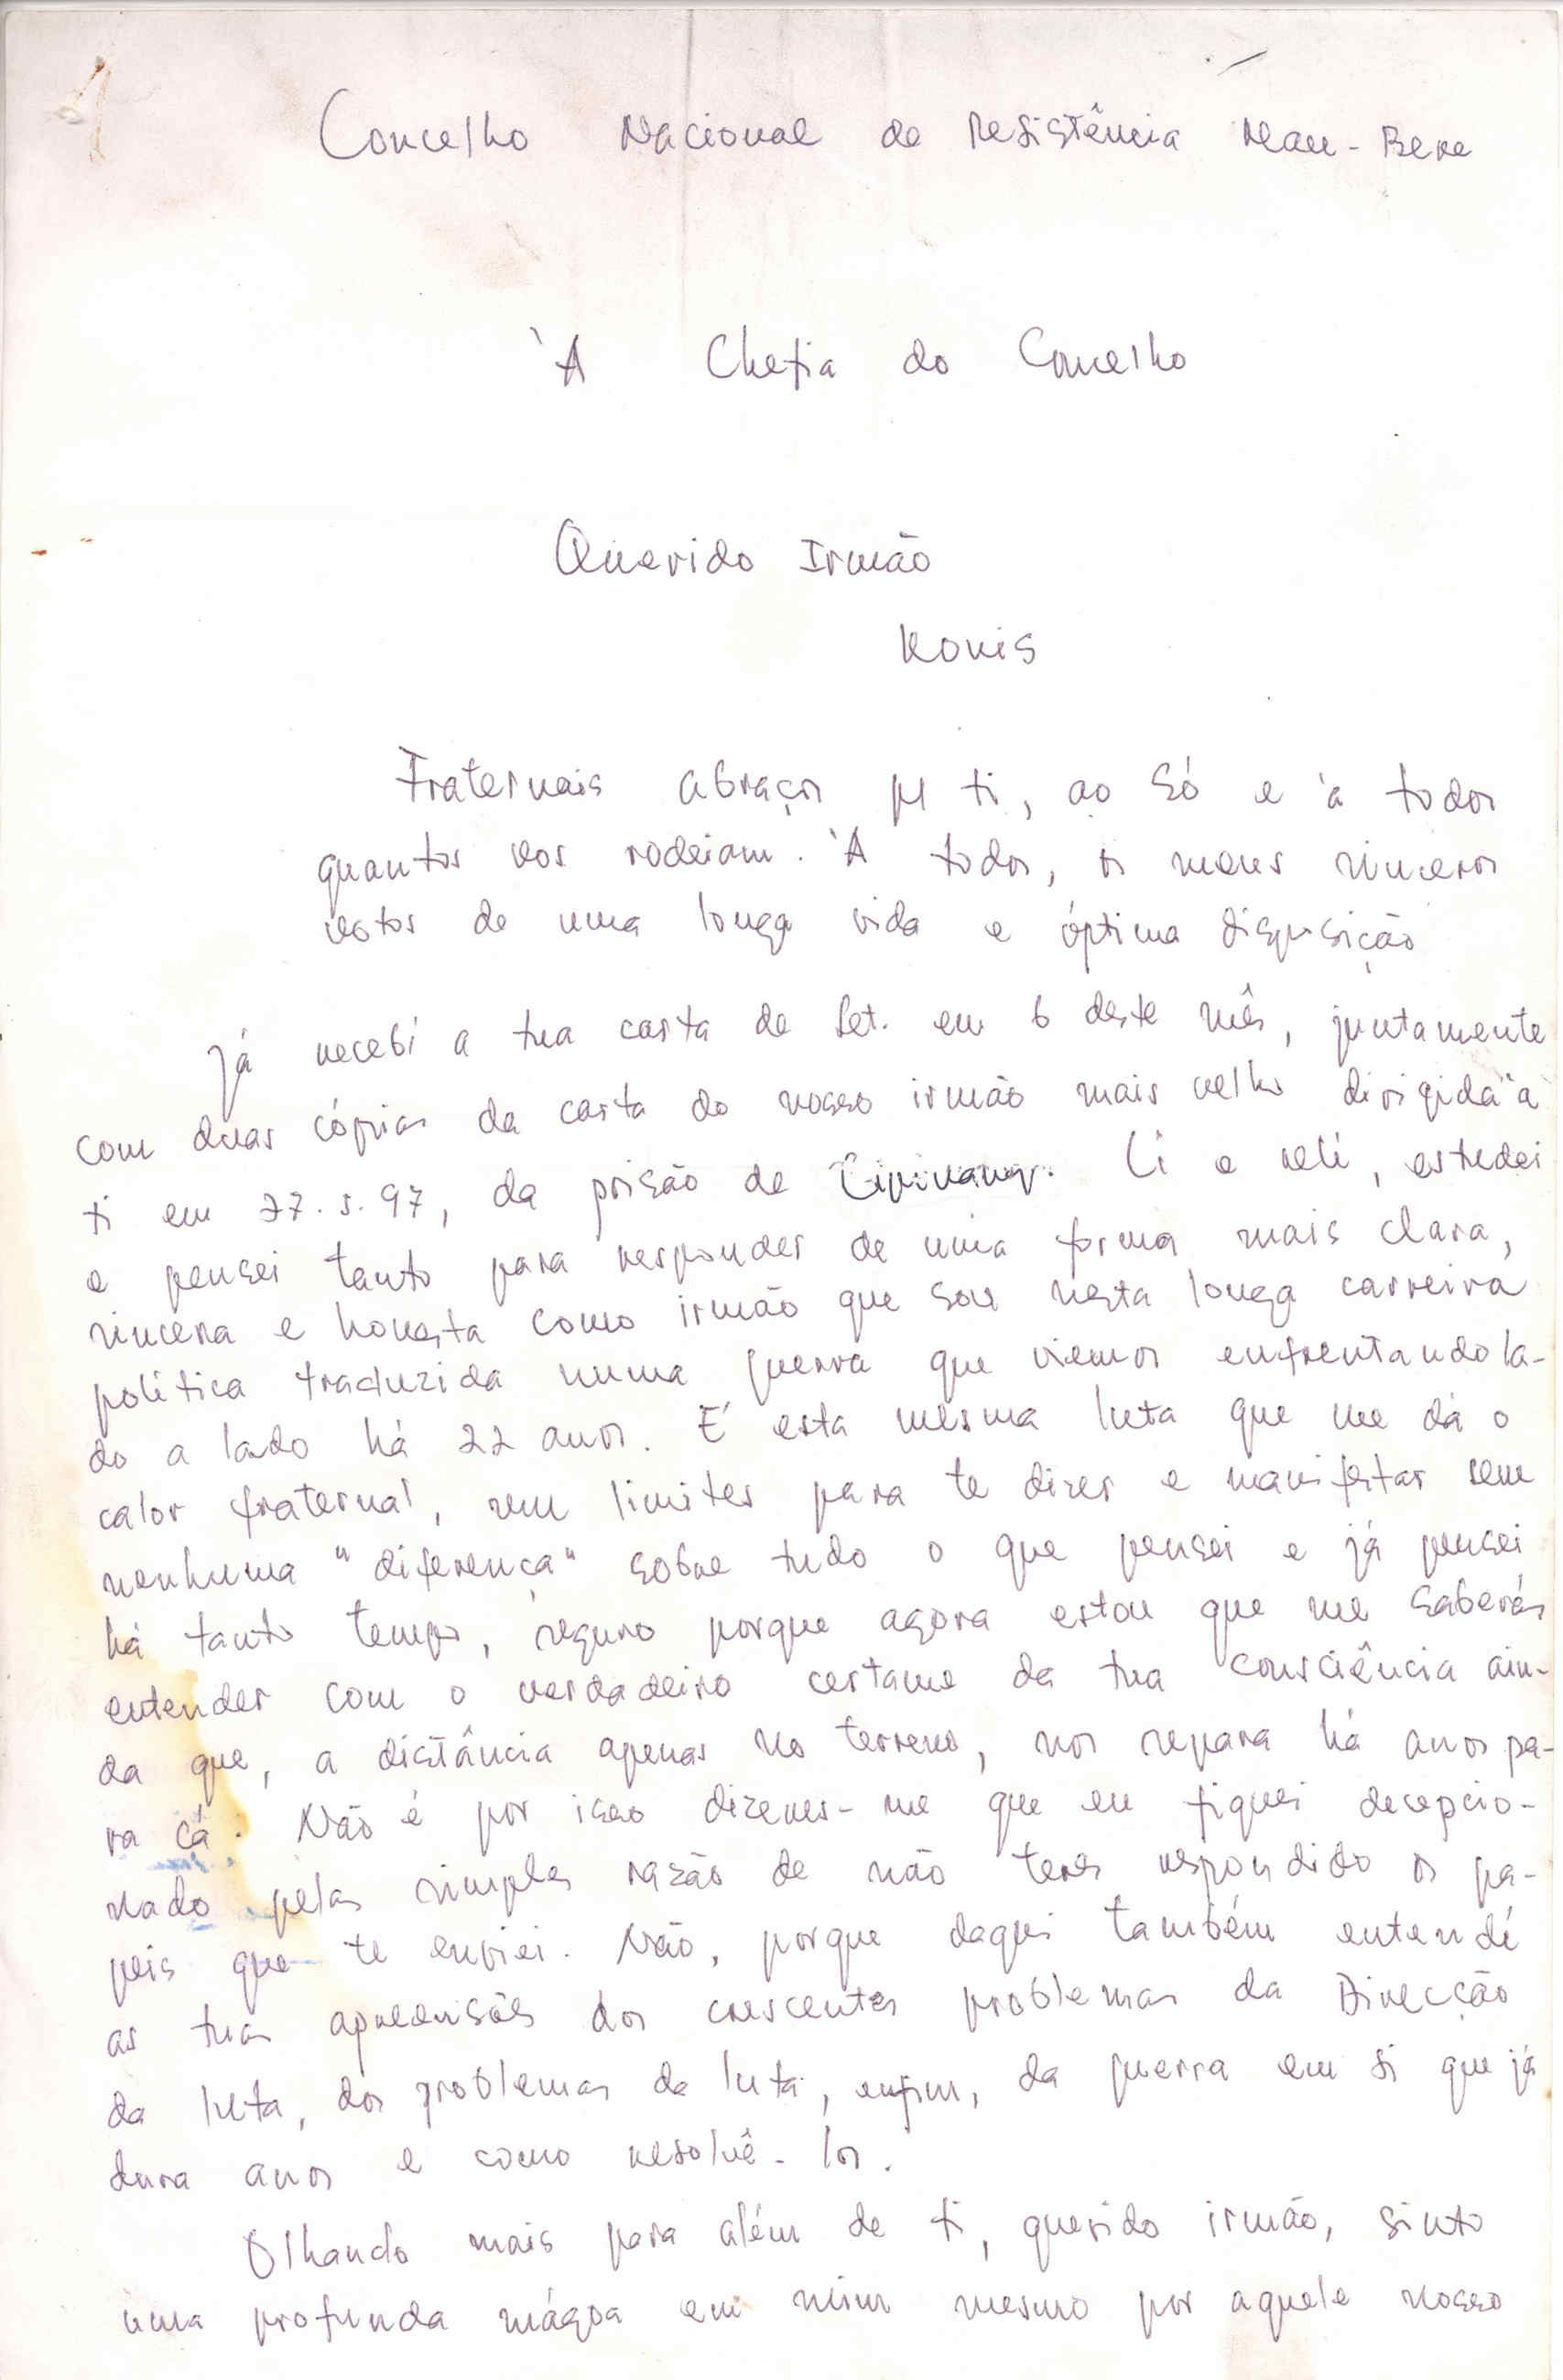 Concelho Nacional de Resistência Mau-Bere
À Chefia do Concelho
Querido Irmão
Konis
Fraternais abraços p/ ti, ao Só e à todos
quantos vos rodeiam. À todos, os meus sinceros
votos de uma longa vida e óptima disposição
Já recebi a tua carta de Set. em 6 deste mês, juntamente
com duas cópias da carta do nosso irmão mais velho dirigida à
ti em 27.5.97, da prisão de Cipinang. Li e reli, estudei
e pensei tanto para responder de uma forma mais clara,
sincera e honesta como irmão que sou nesta longa carreira
política traduzida numa guerra que viemos enfrentando la-
do a lado há 22 anos. É esta mesma luta que me dá o
calor fraternal, sem limites para te dizer e manifestar sem
nenhuma "diferença" sobre tudo o que pensei e já pensei
há tanto tempo, seguro porque agora estou que me saberás
entender com o verdadeiro certame da tua consciência ain-
da que, a distância apenas no terreno, nos separa há anos pa-
ra cá. Não é por isso dizeres-me que eu fiquei decepcio-
nado pelas simples razão de não teres respondido os pa-
peis que te enviei. Não, porque daqui também entendí
as tuas apreensões dos crescentes problemas da Direcção
da luta, dos problemas da luta, enfim, da guerra em si que já
dura anos e como resolvê-los.
Olhando mais para além de ti, querido irmão, sinto
uma profunda mágoa em mim mesmo por aquele nosso